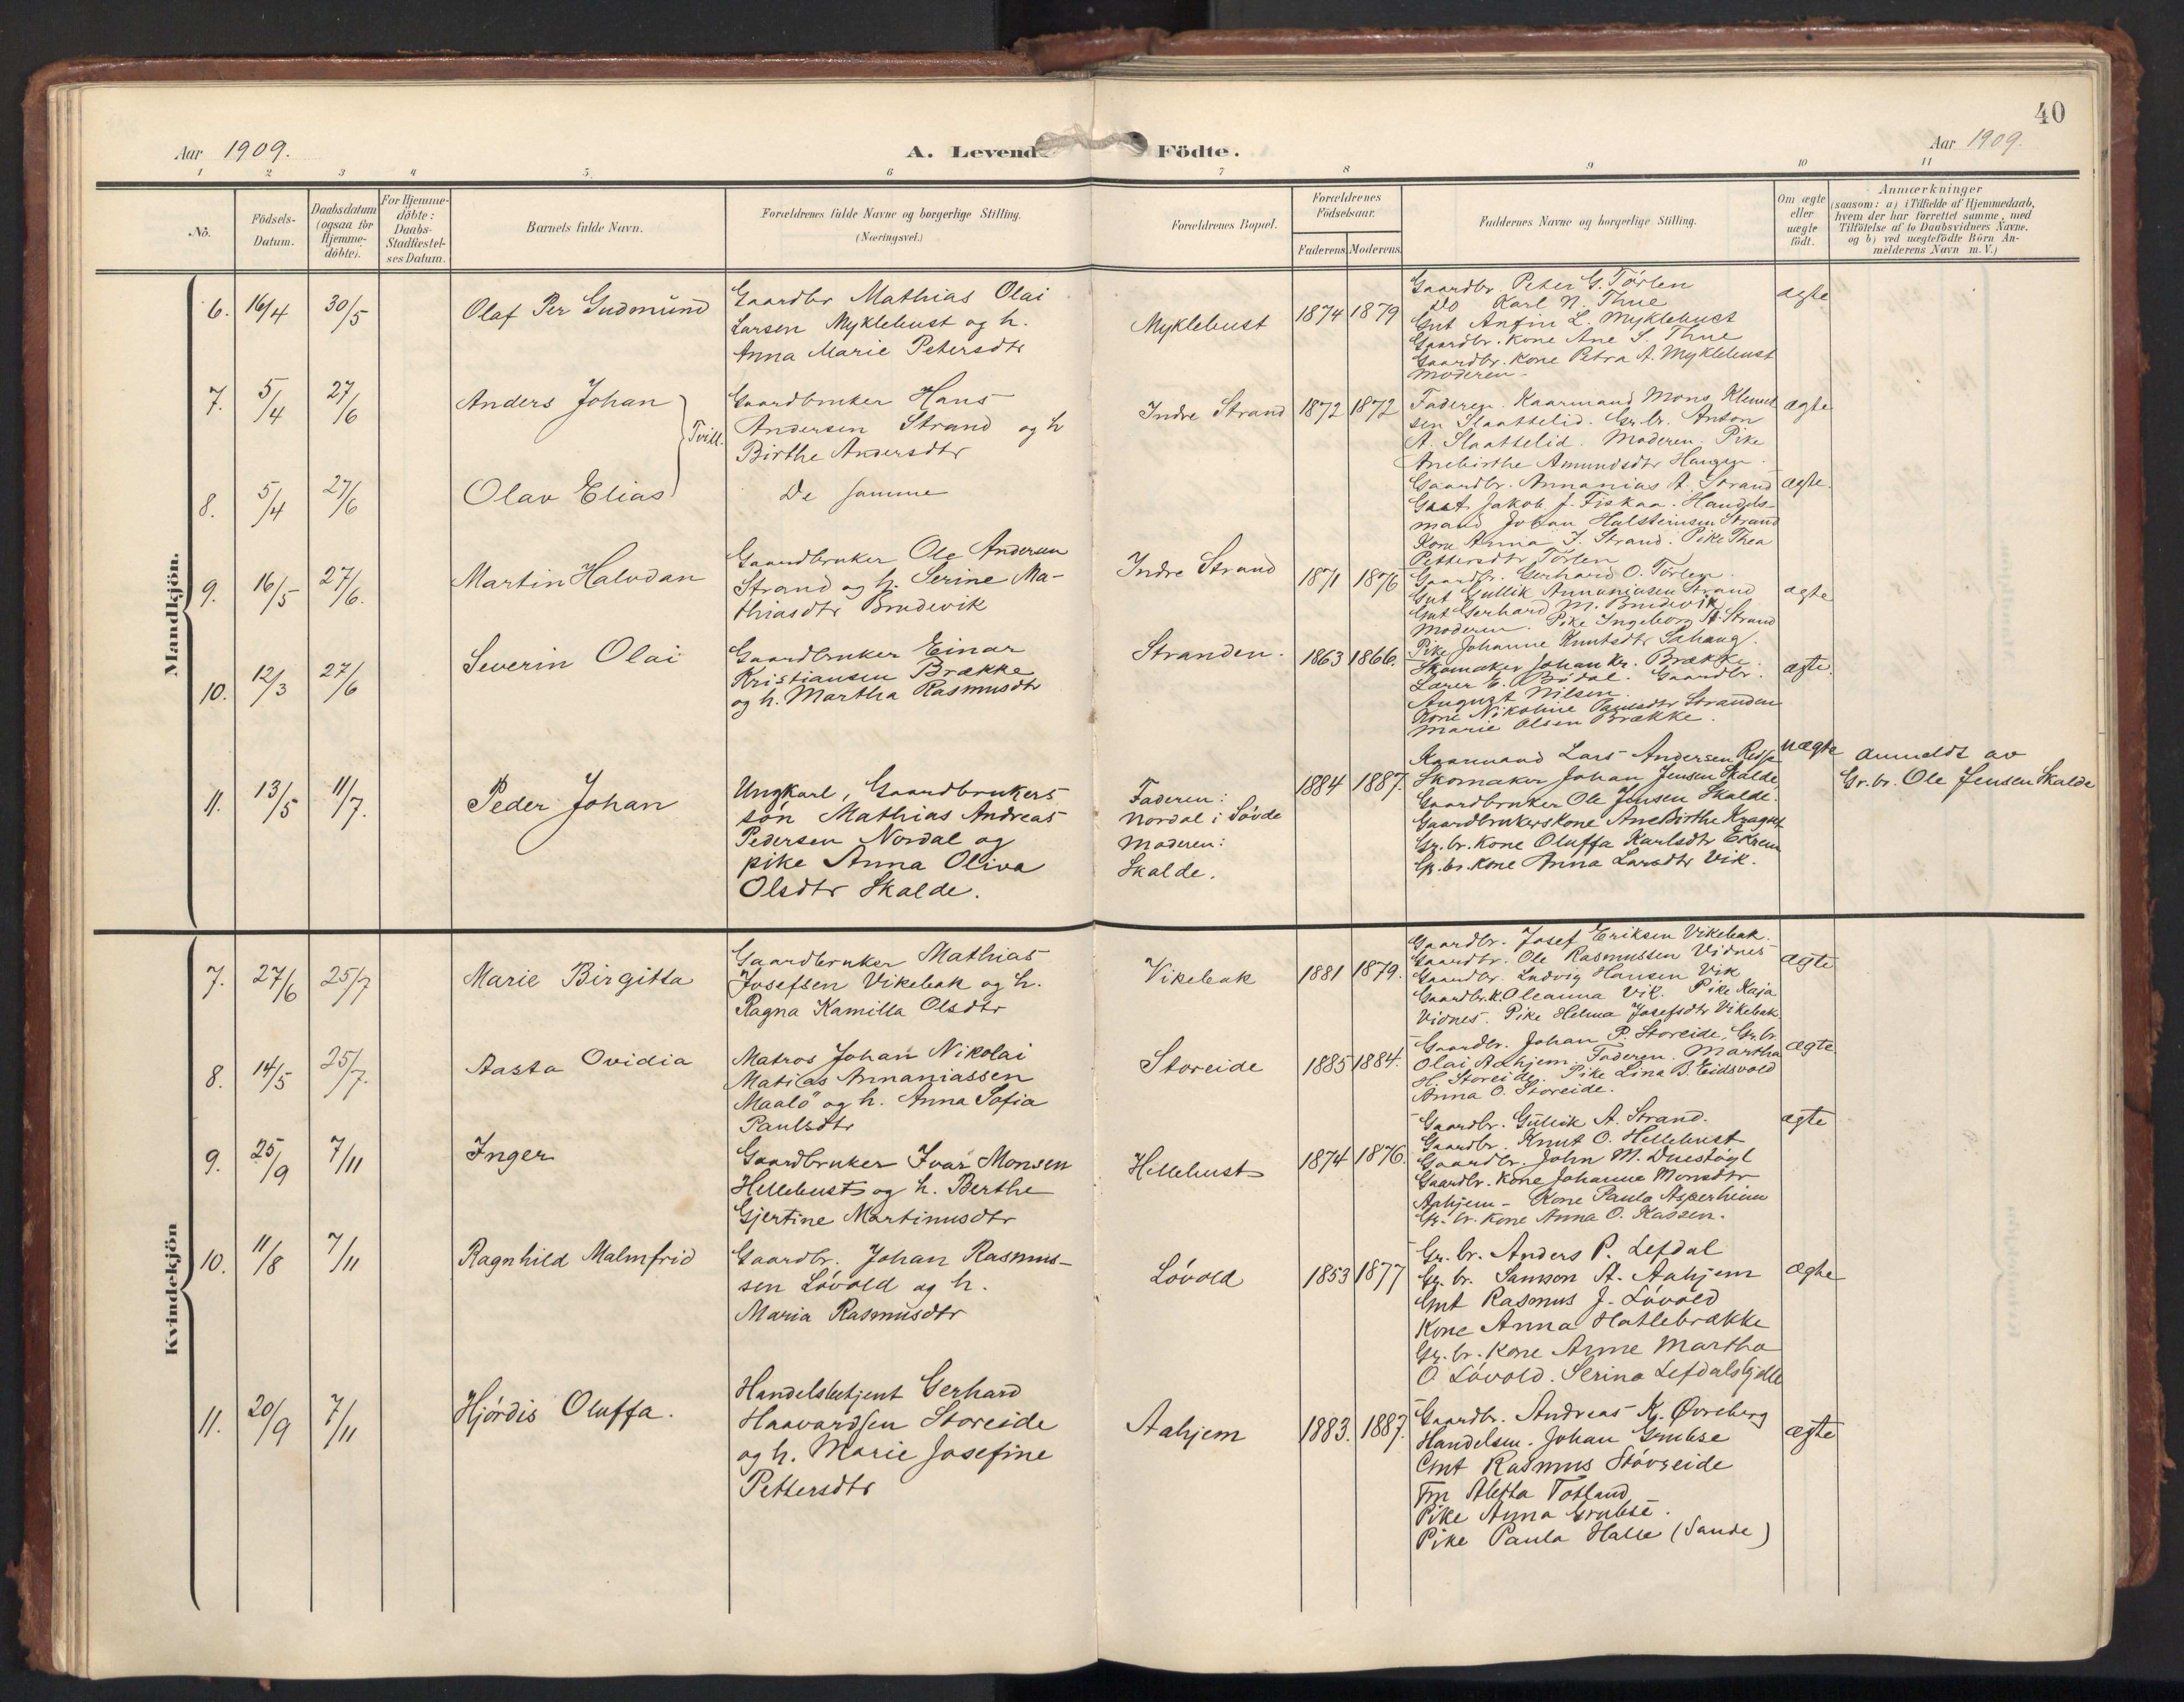 40
Aar 1909.
A. Levende Födte.
Aar 1909.
1 2 3 4 5 6 7 8 9 10 11
No.
Födsels-
Datum.
Daabsdatum
(ogsaa for
Hjemme-
döbte).
For Hjemme-
döbte:
Daabs-
Stadfæstel-
ses Datum.
Barnets fulde Navn.
Forældrenes fulde Navne og borgerlige Stilling.
(Næringsvei.)
Forældrenes Bopæl.
Forældrenes
Födselsaar.
Faderens. Moderens.
Faddernes Navne og borgerlige Stilling.
Om ægte
eller
uægte
födt.
Anmærkninger
(saasom: a) i Tilfælde af Hjemmedaab,
hvem der har forrettet samme, med
Tilföielse af to Daabsvidners Navne,
og b) ved uægtefödte Börn An-
melderens Navn m. V.)
Mandkjön.
6. 16/4 30/5
Olaf Per Gudmund
Gaardbr Mathias Olai
Larsen Myklebust og h.
Anna Marie Petersdtr
Myklebust
1874 1879
Gaardbr. Peter G. Tørlen
Do Karl N. Thue
Gut Anfin L. Myklebust
Gaardbr. kone Ane S. Thue
Gaardbr. kone Petra A. Myklebust
Moderen.
ægte
7. 5/4 27/6
Anders Johan
Tvill.
Gaardbruker Hans
Andersen Strand og h
Birthe Andersdtr
Indre Strand
1872 1872
Faderen. Kaarmand Mons Klemet
sen Slaattelid. Gr.br. Anton
A. Slaattelid. Moderen. Pike
Anebirthe Amundsdtr Haugen.
ægte
8. 5/4 27/6
Olav Elias
De samme
Gaardbr. Annanias A. Strand
Gaat. Jakob J. Fiskaa. Handels-
mand Johan Halsteinsen Strand
Kone Anna J. Strand. Pike Thea
Pettersdtr Tørlen
ægte.
9. 16/5 27/6.
Martin Halvdan
Gaardbruker Ole Andersen
Strand og h. Serine Ma-
thiasdtr Brudevik
Indre Strand
1871 1876
Gaardbr. Gerhard O. Tørlen.
Gut Gullik Annaniasen Strand
Gut Gerhard M. Brudevik
Moderen. Pike Ingeborg A. Strand
Pike Johanne Knutsdtr Sahaug.
ægte
10. 12/3 27/6
Severin Olai
Gaardbruker Einar
Kristiansen Brække
og h. Martha Rasmusdtr
Stranden.
1863 1866.
Skomaker Johan Kr. Brække.
Lærer E. A Bødal. Gaardbr.
August Nilsen.
Kone Nikoline Paulsdtr Stranden
Marie Olsen Brække.
ægte.
11. 13/5 11/7.
Peder Johan
Ungkarl, Gaardbrukers
søn Mathias Andreas
Pedersen Nordal og
pike Anna Oliva
Olsdtr Skalde.
Faderen:
Nordal i Søvde
Moderen:
Skalde.
1884 1887.
Kaarmand Lars Andersen
Skomaker Johan Jensen Skalde
Gaardbruker Ole Jensen Skalde.
Gaardbrukerskone Anebirthe
Gr.br. kone Oluffa Karlsdtr Ekrem
Gr.br. kone Anna Larsdtr Vik.
uægte
anmeldt av
Gr.br. Ole Jensen Skalde
Kvindekjön
7. 27/6 25/7
Marie Birgitta
Gaardbruker Mathias
Josefsen Vikebak og h.
Ragna Kamilla Olsdtr
Vikebak
1881 1879.
Gaardbr. Josef Eriksen Vikebak.
Gaardbr. Ole Rasmussen Vidnes
Gaardbr Ludvig Hansen Vik
Gaardbr.k. Oleanna Vik. Pike Kaja
Vidnes. Pike Helma Josefsdtr Vikebak.
ægte
8. 14/5 25/7.
Aasta Ovidia
Matros Johan Nikolai
Matias Annaniassen
Maalö og h. Anna Sofia
Paulsdtr
Storeide
1885 1884.
Gaardbr. Johan P. Storeide, Gr.br.
Olai Aahjem. Faderen. Martha
H. Storeide. Pike Lina B. Eidsvold
Anna O. Storeide.
ægte.
9. 25/9 7/11
Inger
Gaardbruker Ivar Monsen
Hellebust og h. Berthe
Gjertine Martinusdtr
Hellebust
1874 1876.
Gaardbr. Gullik A. Strand.
Gaardbr. Knut O. Hellebust
Gaardbr. John M. Duestøl
Gaardbr. kone Johanne Monsdtr
Aahjem – Kone Paula Asperheim
Gr. br. kone Anna O. Kassen.
ægte
10. 11/8 7/11
Ragnhild Malmfrid
Gaardbr. Johan Rasmus-
sen Løvold og h.
Maria Rasmusdtr
Løvold
1853 1877
Gr. br. Anders P. Lefdal
Gr. br. Samson A. Aahjem
Gut Rasmus J. Løvold
Kone Anna Hatlebrække
Gr. br. kone Anne Martha
O Løvold. Serina
ægte
11. 20/9 7/11
Hjørdis Oluffa.
Handelsbetjent Gerhard
Haavardsen Storeide
og h. Marie Josefine
Pettersdtr
Aahjem
1883. 1887.
Gaardbr. Andreas K. Øvreberg
Handelsm. Johan Grubse
Gut Rasmus Støvreide
Fru Aletta Totland
Pike Anna Grubse.
Pike Paula Halle (Sande)
ægte